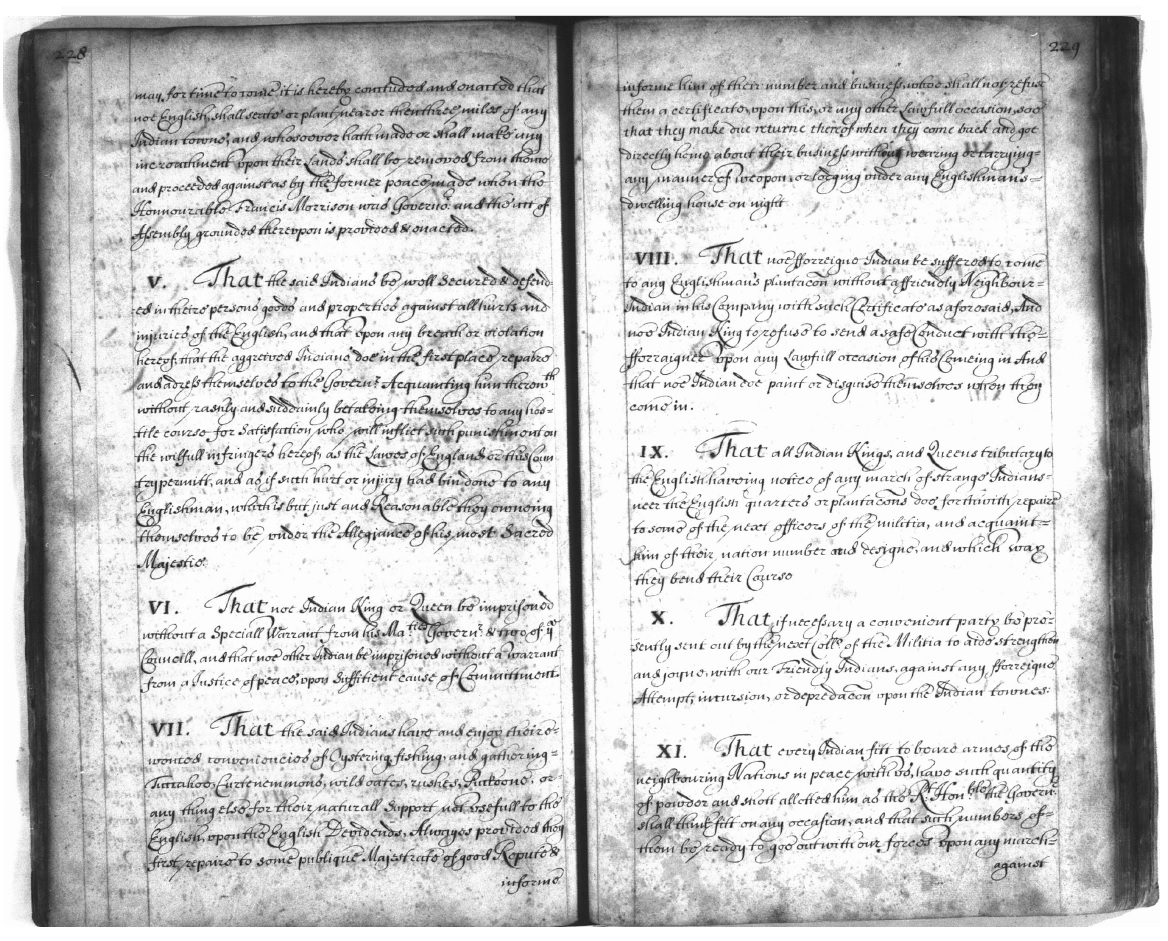 228
may, for time to come it is hereby concluded and enacted that
noe English, shall seate or plant nearer then three miles of any
Indian towne, and whosoever hath made or shall make any
incroachment upon their Lands shall be removed from thence
and proceeded against as by the former peace made when the
Honnourable Francis Morrison was Governor. and the act of
Assembly grounded thereupon is provided & enacted.
V. That the said Indians be well Secured & defend
ed in theire persons goods and properties against all hurts and
injuries of the English, and that upon any breach or violation
hereof, that the aggreived Indians doe in the first place repaire
and adress themselves to the Governr. Acquainting him therewth
without rashly and suddainly betaking themselves to any hos=
tile course for Satisfaction who will inflict such punishment on
the wilfull infringers hereof, as the Lawes of England or this Coun
try permitt, and as if such hurt or injury had bin done to any
Englishman, which is but just and Reasonable they owneing
themselves to be under the Allegiance of his most Sacred
Majestie.
VI. That noe Indian King or Queen be imprisoned
without a Speciall Warrant from his Ma:ties Governr. & two of ye
Councill, and that noe other Indian be imprisoned without a warrant
from a Justice of peace, upon Suffitient cause of Committment
VII. That the said Indians have and enjoy theire=
wonted conveniencies of Oystering, fishing, and gathering=
Tuccahoe, Curtenemmons, wild oates, rushes, Puckoone, or=
any thing else for their naturall Support not usefull to the
English, upon the English Devidends, Alwayes provided they
first repaire to some publique Majestrate of good Repute &
informe
229
informe him of their number and business, whoe shall not refuse
them a certificate upon this, or any other Lawfull occasion, soe
that they make due returne thereof when they come back and goe
directly home about their business without wearing or carrying=
any manner of weopon, or lodging under any Englishmans=
dwelling house on night
VIII. That noe fforreigne Indian be suffered to come
to any Englishmans plantacon without a ffriendly Neighbour=
Indian in his Company with such Certificate as aforesaid, And
noe Indian King to refuse to send a safe Conduct with the=
fforraigner upon any Lawfull occasion of his Comeing in And
that noe Indian doe paint or disguise themselves when they
come in.
IX. That all Indian Kings, and Queens tributary to
the English haveing notice of any march of strange Indians=
neer the English quarters or plantacons doe forthwith repaire
to some of the next officers of the militia, and acquaint=
him of their nation number and designe, and which way
they bend their Course
X. That, if necessary a convenient party be pre=
sently sent out by the next Collo. of the Militia to aide strengthen
and joyne with our Friendly Indians, against any fforreigne
Attempt, incursion, or depredacon upon the Indian townes:
XI. That every Indian fitt to beare armes, of the
neighbouring Nations in peace with us, have such quantity
of powder and shott allotted him as the Rt. Honble. the Governr.
shall think fitt on any occasion, and that such numbers of=
them be ready to goe out with our forces upon any march=
against